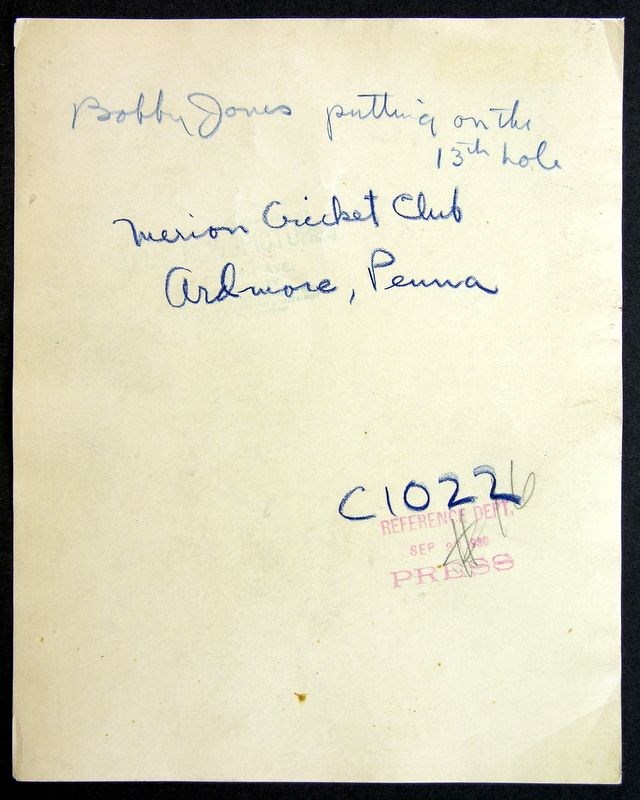 Bobby Jones putting on the
13th hole
Merion Cricket Club
Ardmore, Penna
C10222
REFERENCE DEPT.
SEP
PRESS